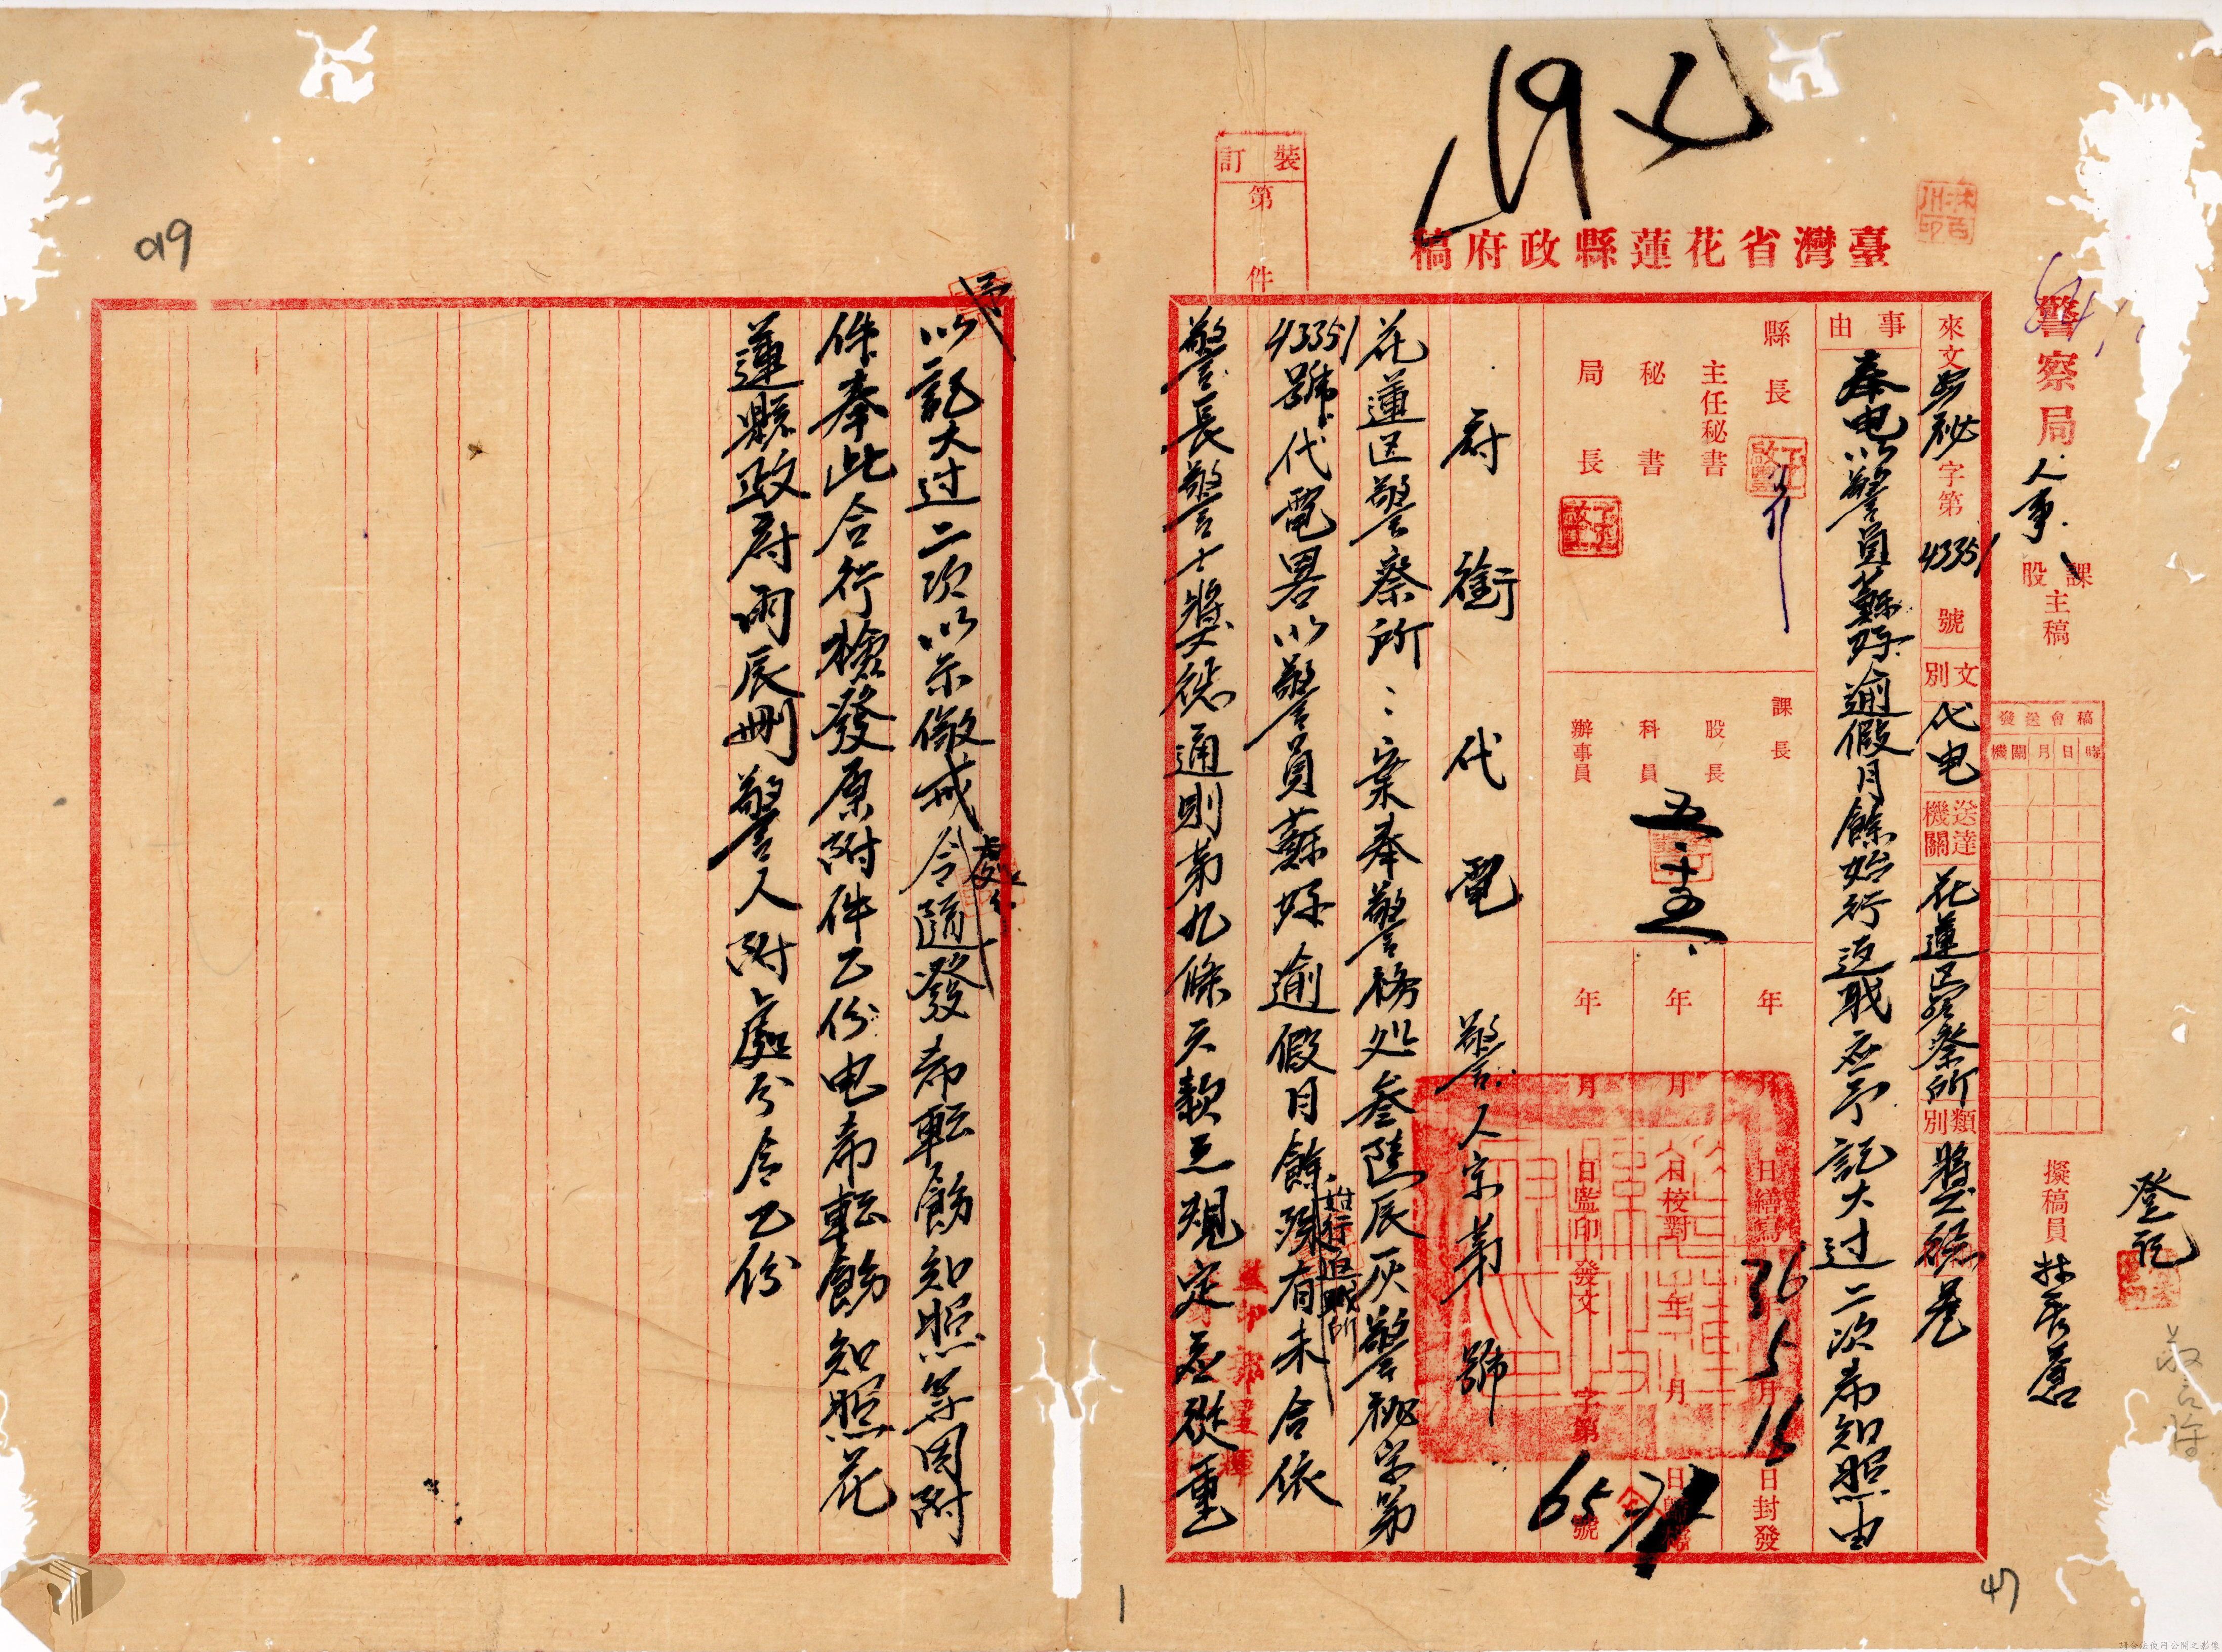 臺灣省花蓮縣政府稿
警察局
人事
課
股
主稿
擬稿員
登記
稿會送發
時日月關機
來文
警秘
字第
43351
號
文別
代电
送達機關
花蓮區警察所
類別
獎懲卷
事由
奉电以警員蘇好逾假月餘始行返職应予記大过二次希知照由
縣長
主任秘書
秘書
局長
課長
股長
科員
辦事員
五.十五.
年月日繕寫
年月日校對
年月日監印
36
5
15
年月日封發
發文
字第
號
裝訂
第
件
府銜代電 警人字第 號
花蓮区警察所:案奉警務処叁陸辰灰警秘字第
43351號代電畧以警員蘇好逾假月餘始行返職所
有未合依
警長警士獎懲通則第九條六款之規定应從重
以記大过二次以示儆戒令隨發希転飭知照等因附
件奉此合行檢發原附件乙份电希転飭知照花
蓮縣政府雨辰刪警人附處分令乙份
019
47
1